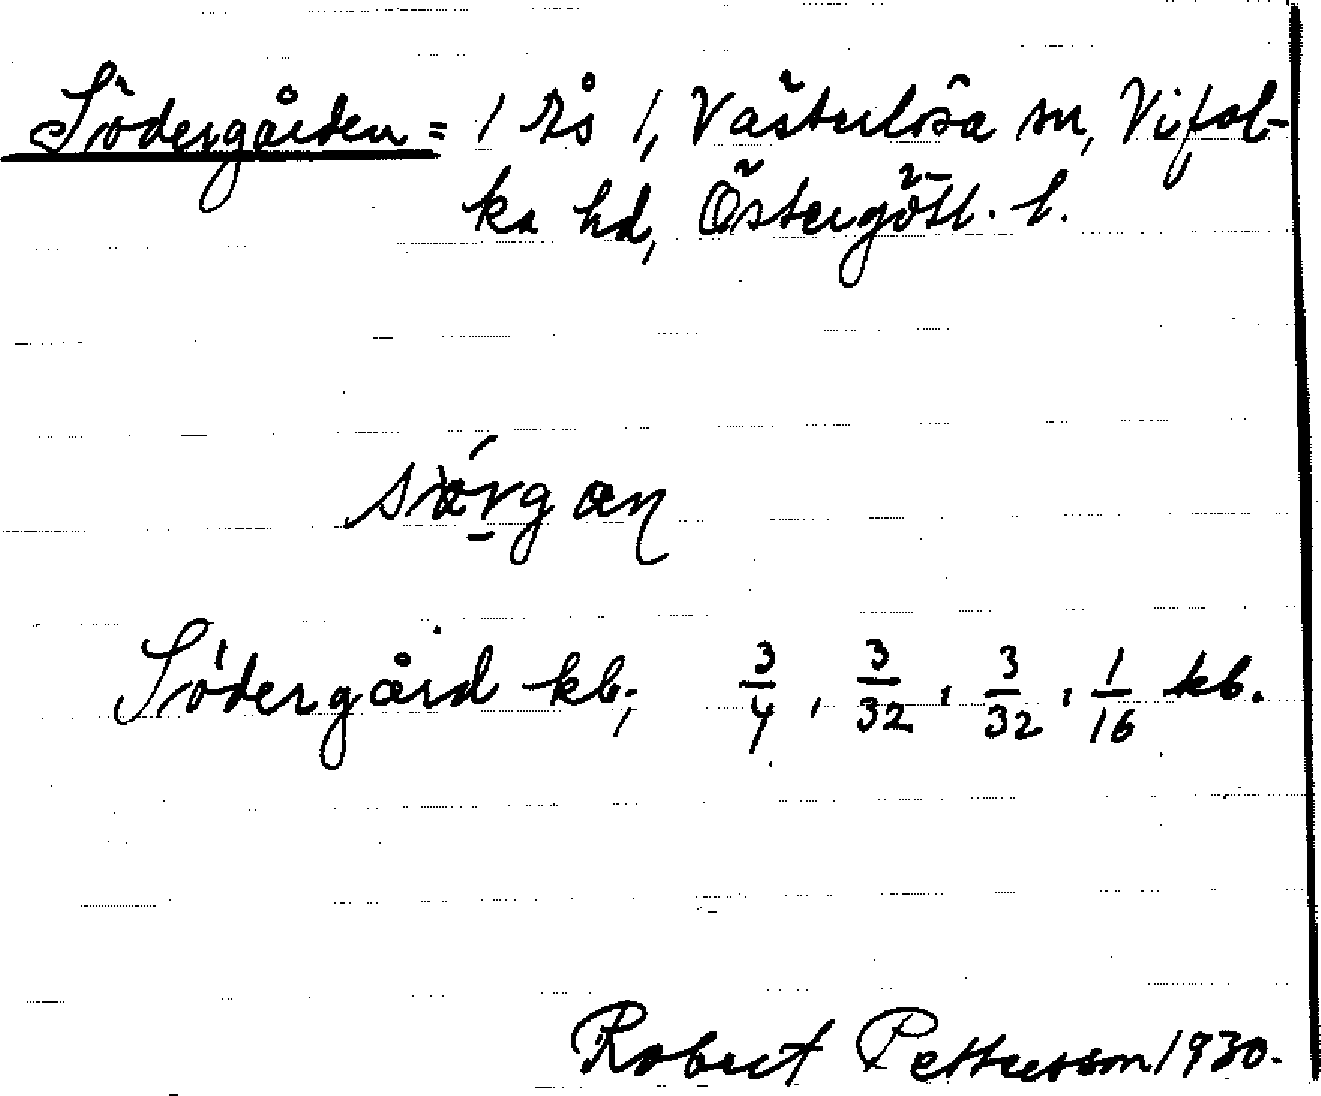 Södergården = 1 Rå 1, Västerlösa sn, Vifol-
ka hd, Östergötl. l.
Södergård kb; 3/4, 3/32, 3/32, 1/16 kb.
Robert Pettersson 1930.